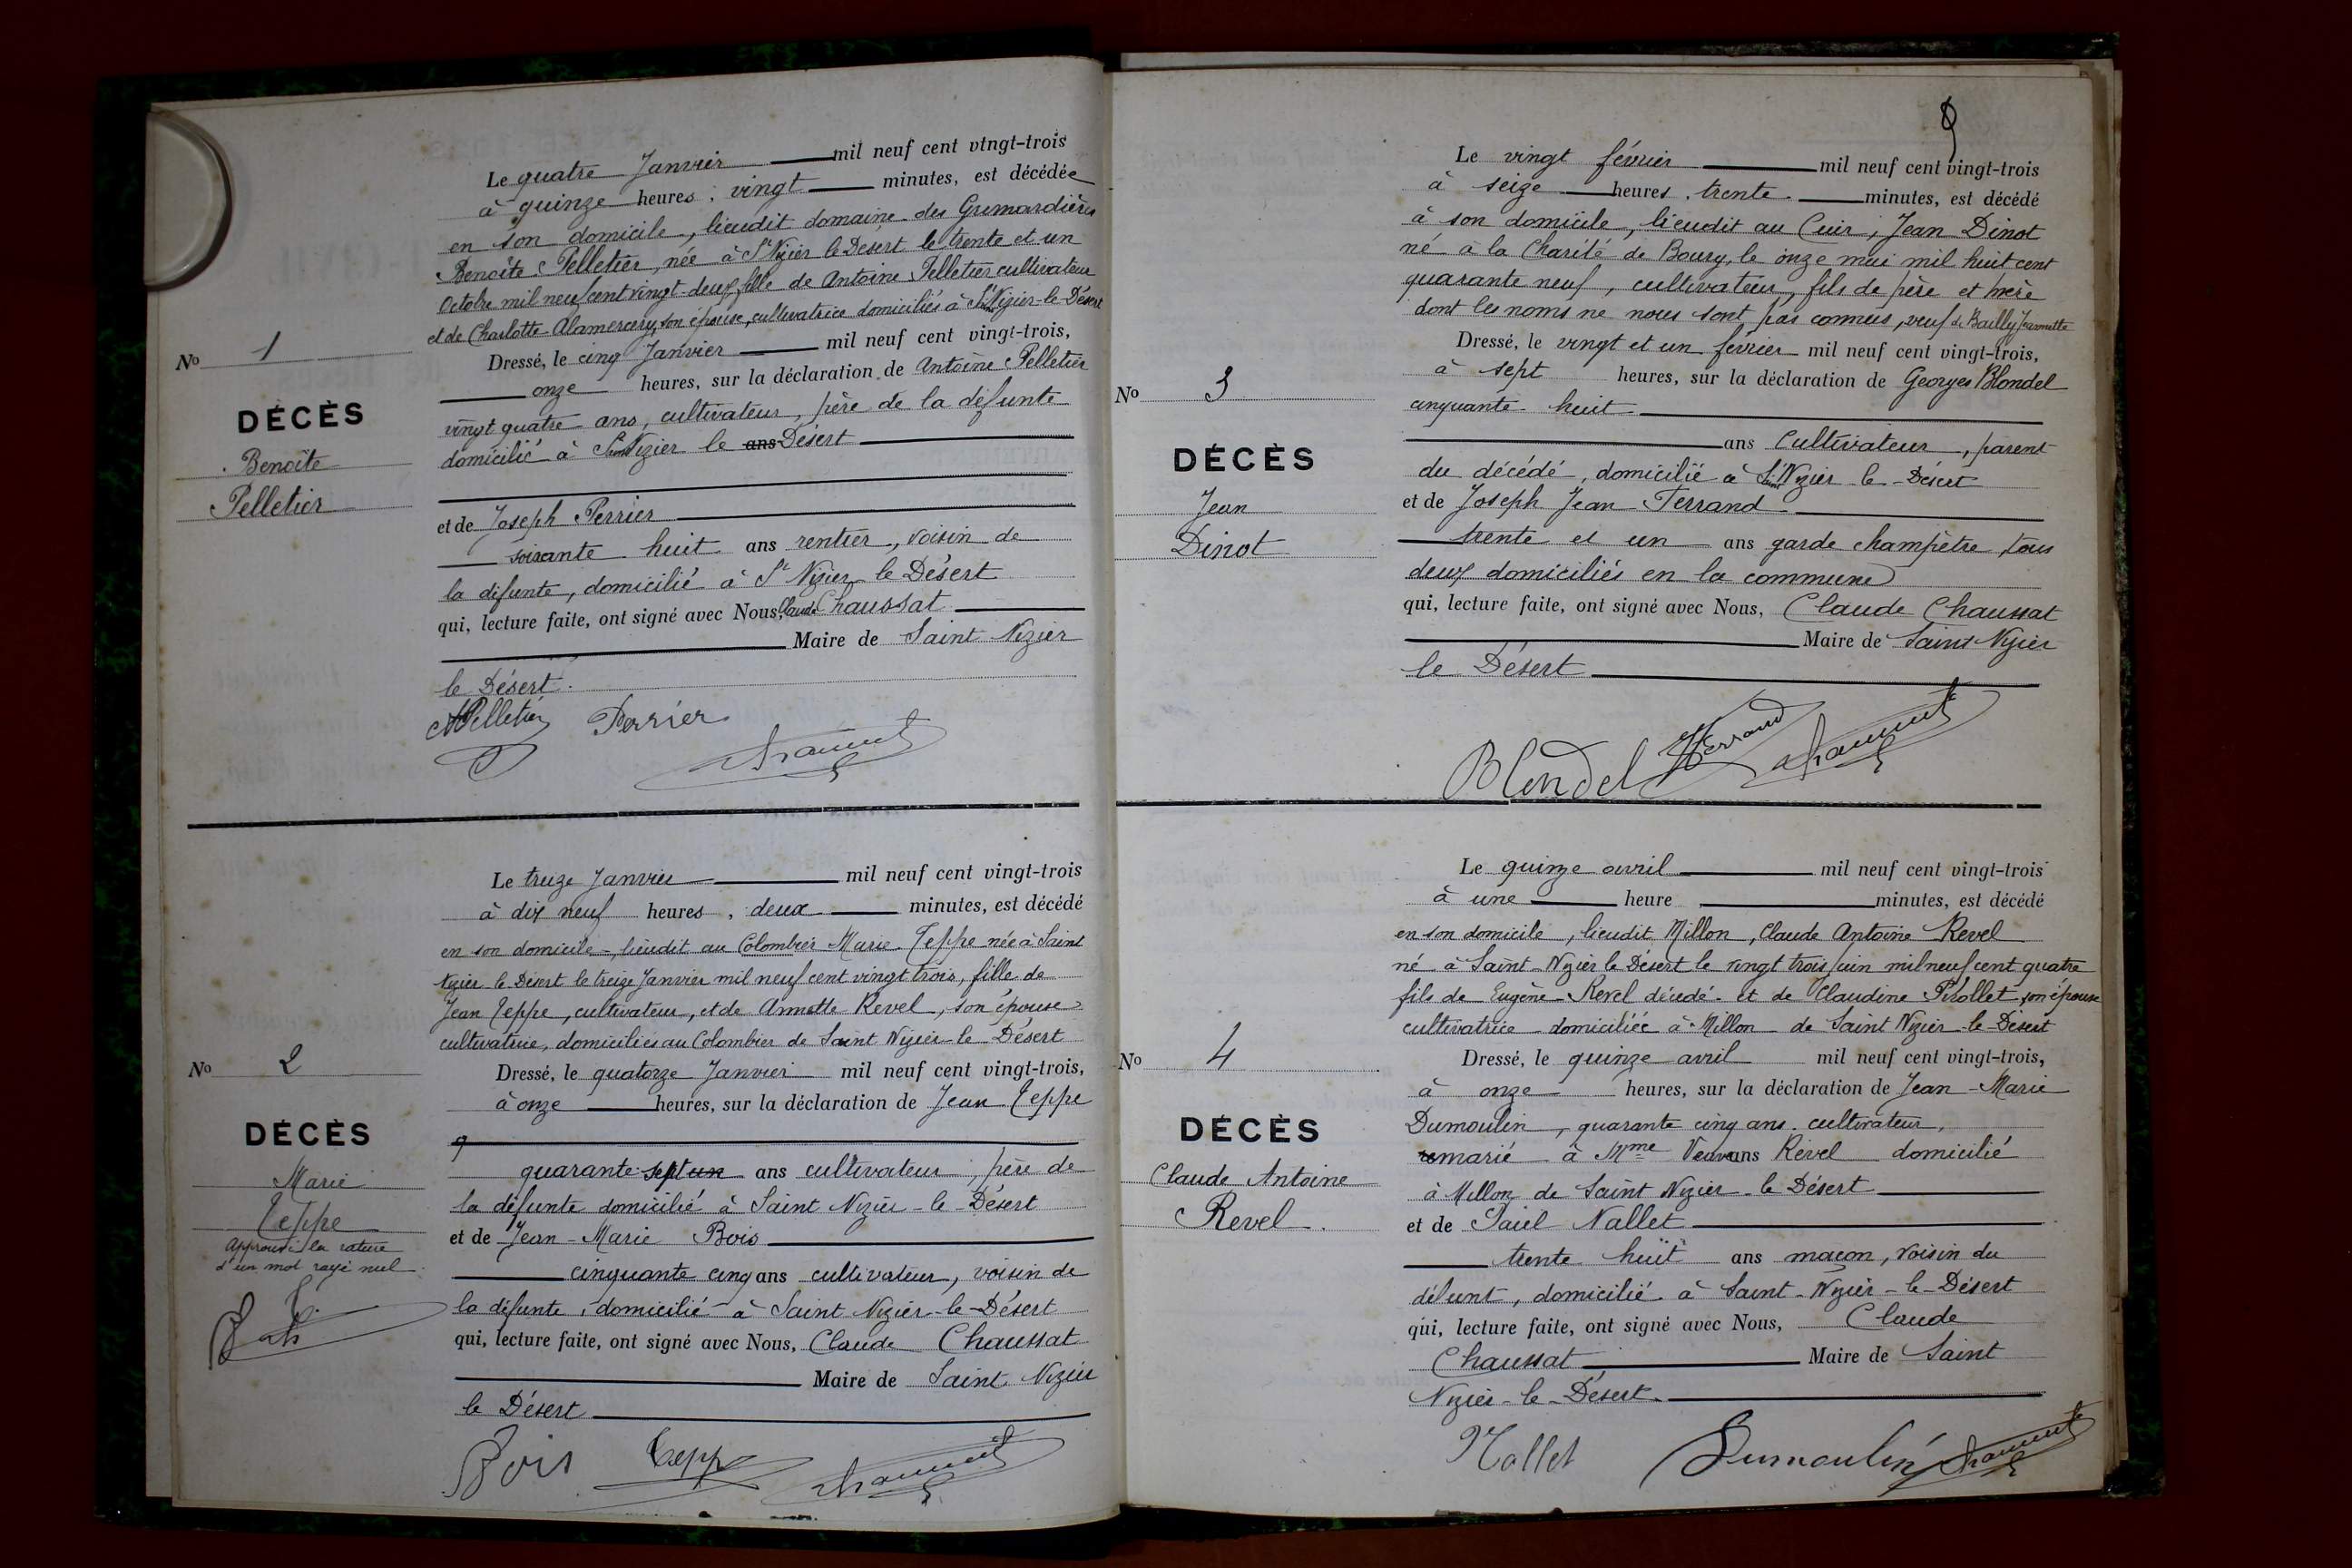 Le quatre Janvier mil neuf cent vingt-trois
à quinze heures, vingt minutes, est décédée
en son domicile, lieudit domaine des Grimardières
Benoîte Pelletier, née à St Nizier le Désert le trente et un
Octobre mil neuf cent vingt-deux, fille de Antoine Pelletier cultivateur
et de Charlotte Alamercery, son épouse, cultivatrice domiciliés à Saint Nizier-le-Désert
No 1
DÉCÈS
Benoîte
Pelletier
Dressé, le cinq Janvier mil neuf cent vingt-trois,
onze heures, sur la déclaration de Antoine Pelletier
vingt quatre ans, cultivateur, père de la défunte
domicilié à Saint Nizier le ans Désert
et de Joseph Perrier
soixante huit ans rentier, voisin de
la défunte, domicilié à St Nizier le Désert
qui, lecture faite, ont signé avec Nous, Claude Chaussat
Maire de Saint Nizier
le Désert.
Pelletier Perrier Chaussat
Le treize Janvier mil neuf cent vingt-trois
à dix neuf heures, deux minutes, est décédé
en son domicile, lieudit au Colombier Marie Teppe née à Saint
Nizier le Désert le treize Janvier mil neuf cent vingt trois, fille de
Jean Teppe, cultivateur, et de Annette Revel, son épouse
cultivatrice, domiciliés au Colombier de Saint Nizier-le-Désert
No 2
DÉCÈS
Marie
Teppe
Approuvé la rature
d'un mot rayé nul
Dressé, le quatorze Janvier mil neuf cent vingt-trois,
à onze heures, sur la déclaration de Jean Teppe
quarante sept un ans cultivateur, père de
la défunte domicilié à Saint Nizier-le-Désert
et de Jean-Marie Bois
cinquante cinq ans cultivateur, voisin de
la défunte, domicilié à Saint Nizier-le-Désert
qui, lecture faite, ont signé avec Nous, Claude Chaussat
Maire de Saint Nizier
le Désert
Bois Teppe Chaussat
Le vingt février mil neuf cent vingt-trois
à seize heures, trente minutes, est décédé
à son domicile, lieudit au Cuir, Jean Dinot
né à la Charité de Bourg, le onze mai mil huit cent
quarante neuf, cultivateur, fils de père et mère
dont les noms ne nous sont pas connus, veuf de Bailly Jeannette
No 3
DÉCÈS
Jean
Dinot
Dressé, le vingt et un février mil neuf cent vingt-trois,
à sept heures, sur la déclaration de Georges Blondel
cinquante huit
ans cultivateur, parent
du décédé, domicilié à Saint Nizier le-Désert
et de Joseph Jean Ferrand
trente et un ans garde champêtre, tous
deux domiciliés en la commune
qui, lecture faite, ont signé avec Nous, Claude Chaussat
Maire de Saint Nizier
le Désert
Blondel Ferrand Chaussat
Le quinze avril mil neuf cent vingt-trois
à une heure minutes, est décédé
en son domicile, lieudit Millon, Claude Antoine Revel
né à Saint-Nizier le Désert le vingt trois juin mil neuf cent quatre
fils de Eugène Revel décédé et de Claudine Pérollet son épouse
cultivatrice domiciliée à Millon de Saint Nizier-le-Désert
No 4
DÉCÈS
Claude Antoine
Revel.
Dressé, le quinze avril mil neuf cent vingt-trois,
à onze heures, sur la déclaration de Jean-Marie
Dumoulin, quarante cinq ans cultivateur,
remarié à Mme Veuve ans Revel domicilié
à Millon de Saint Nizier-le Désert
et de Nallet
trente huit ans maçon, voisin du
défunt, domicilié à Saint-Nizier-le-Désert
qui, lecture faite, ont signé avec Nous, Claude
Chaussat Maire de Saint
Nizier-le-Désert
Nallet Dumoulin Chaussat